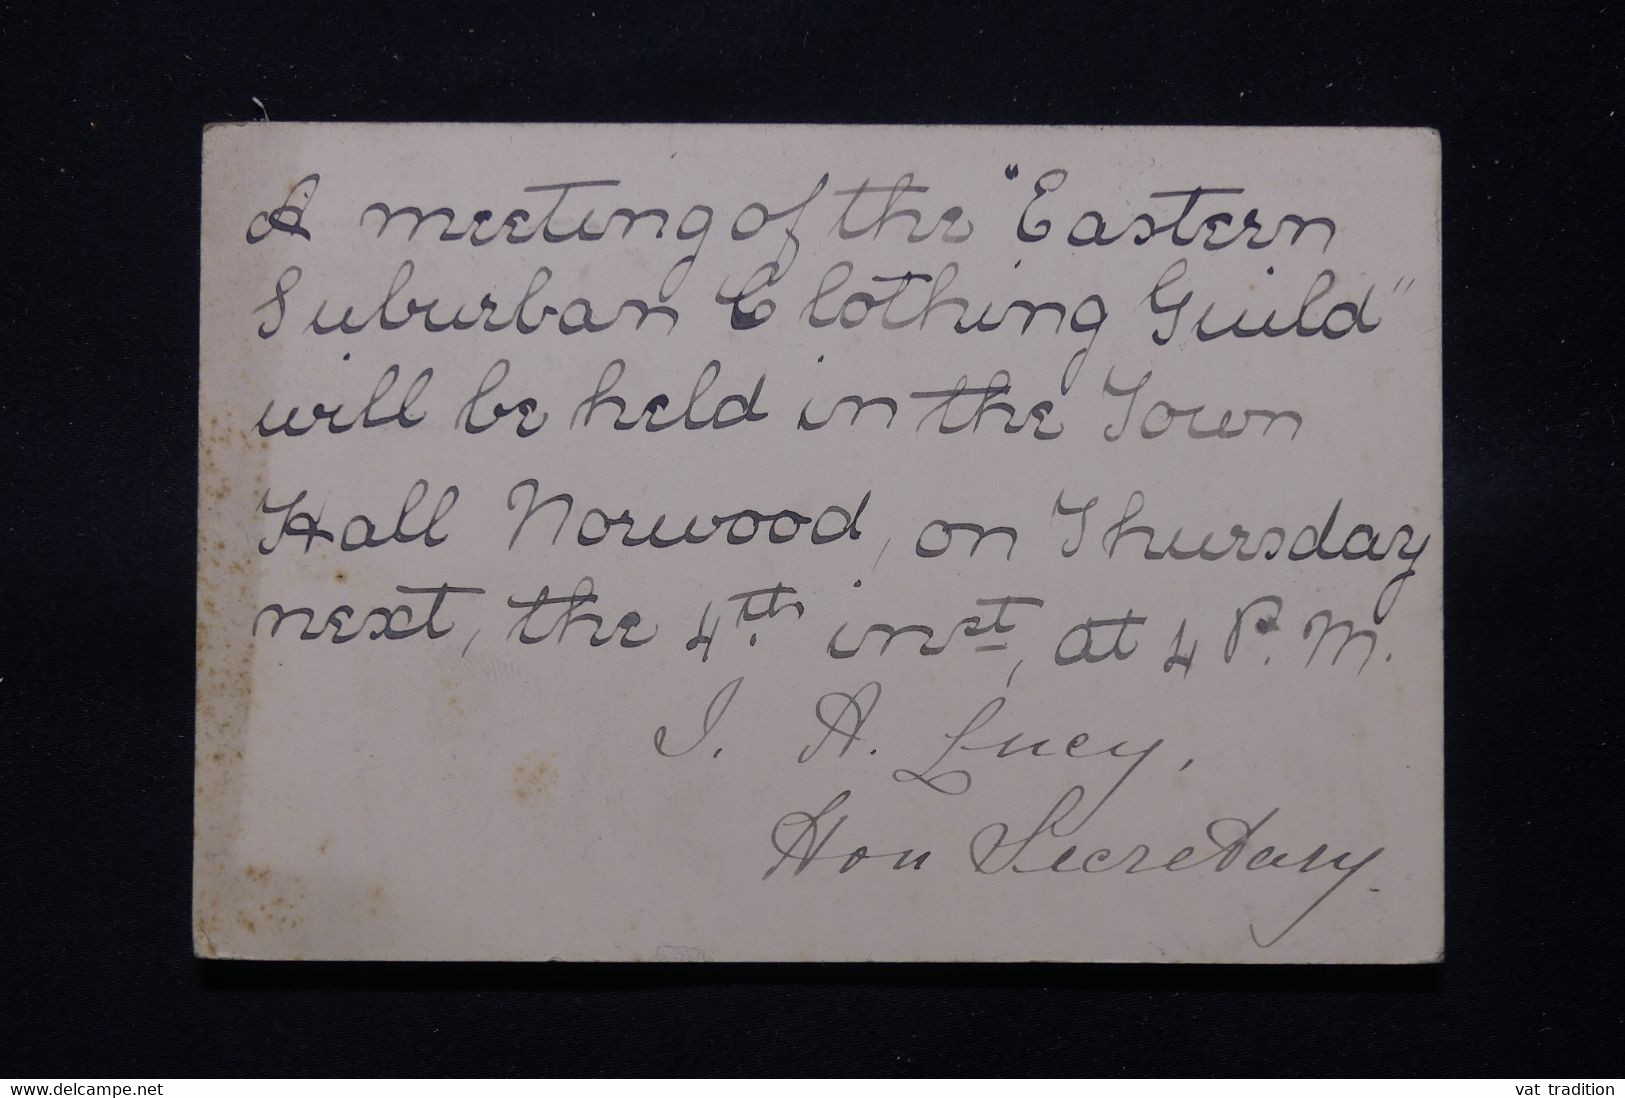 A meeting of the "Eastern
Suburban Clothing Guild"
will be held in the Town
Hall Norwood, on Thursday
next, the 4th. inst, at 4 P.M.
J. A. Lucy,
Hon Secretary.
www.delcampe.net
vat tradition